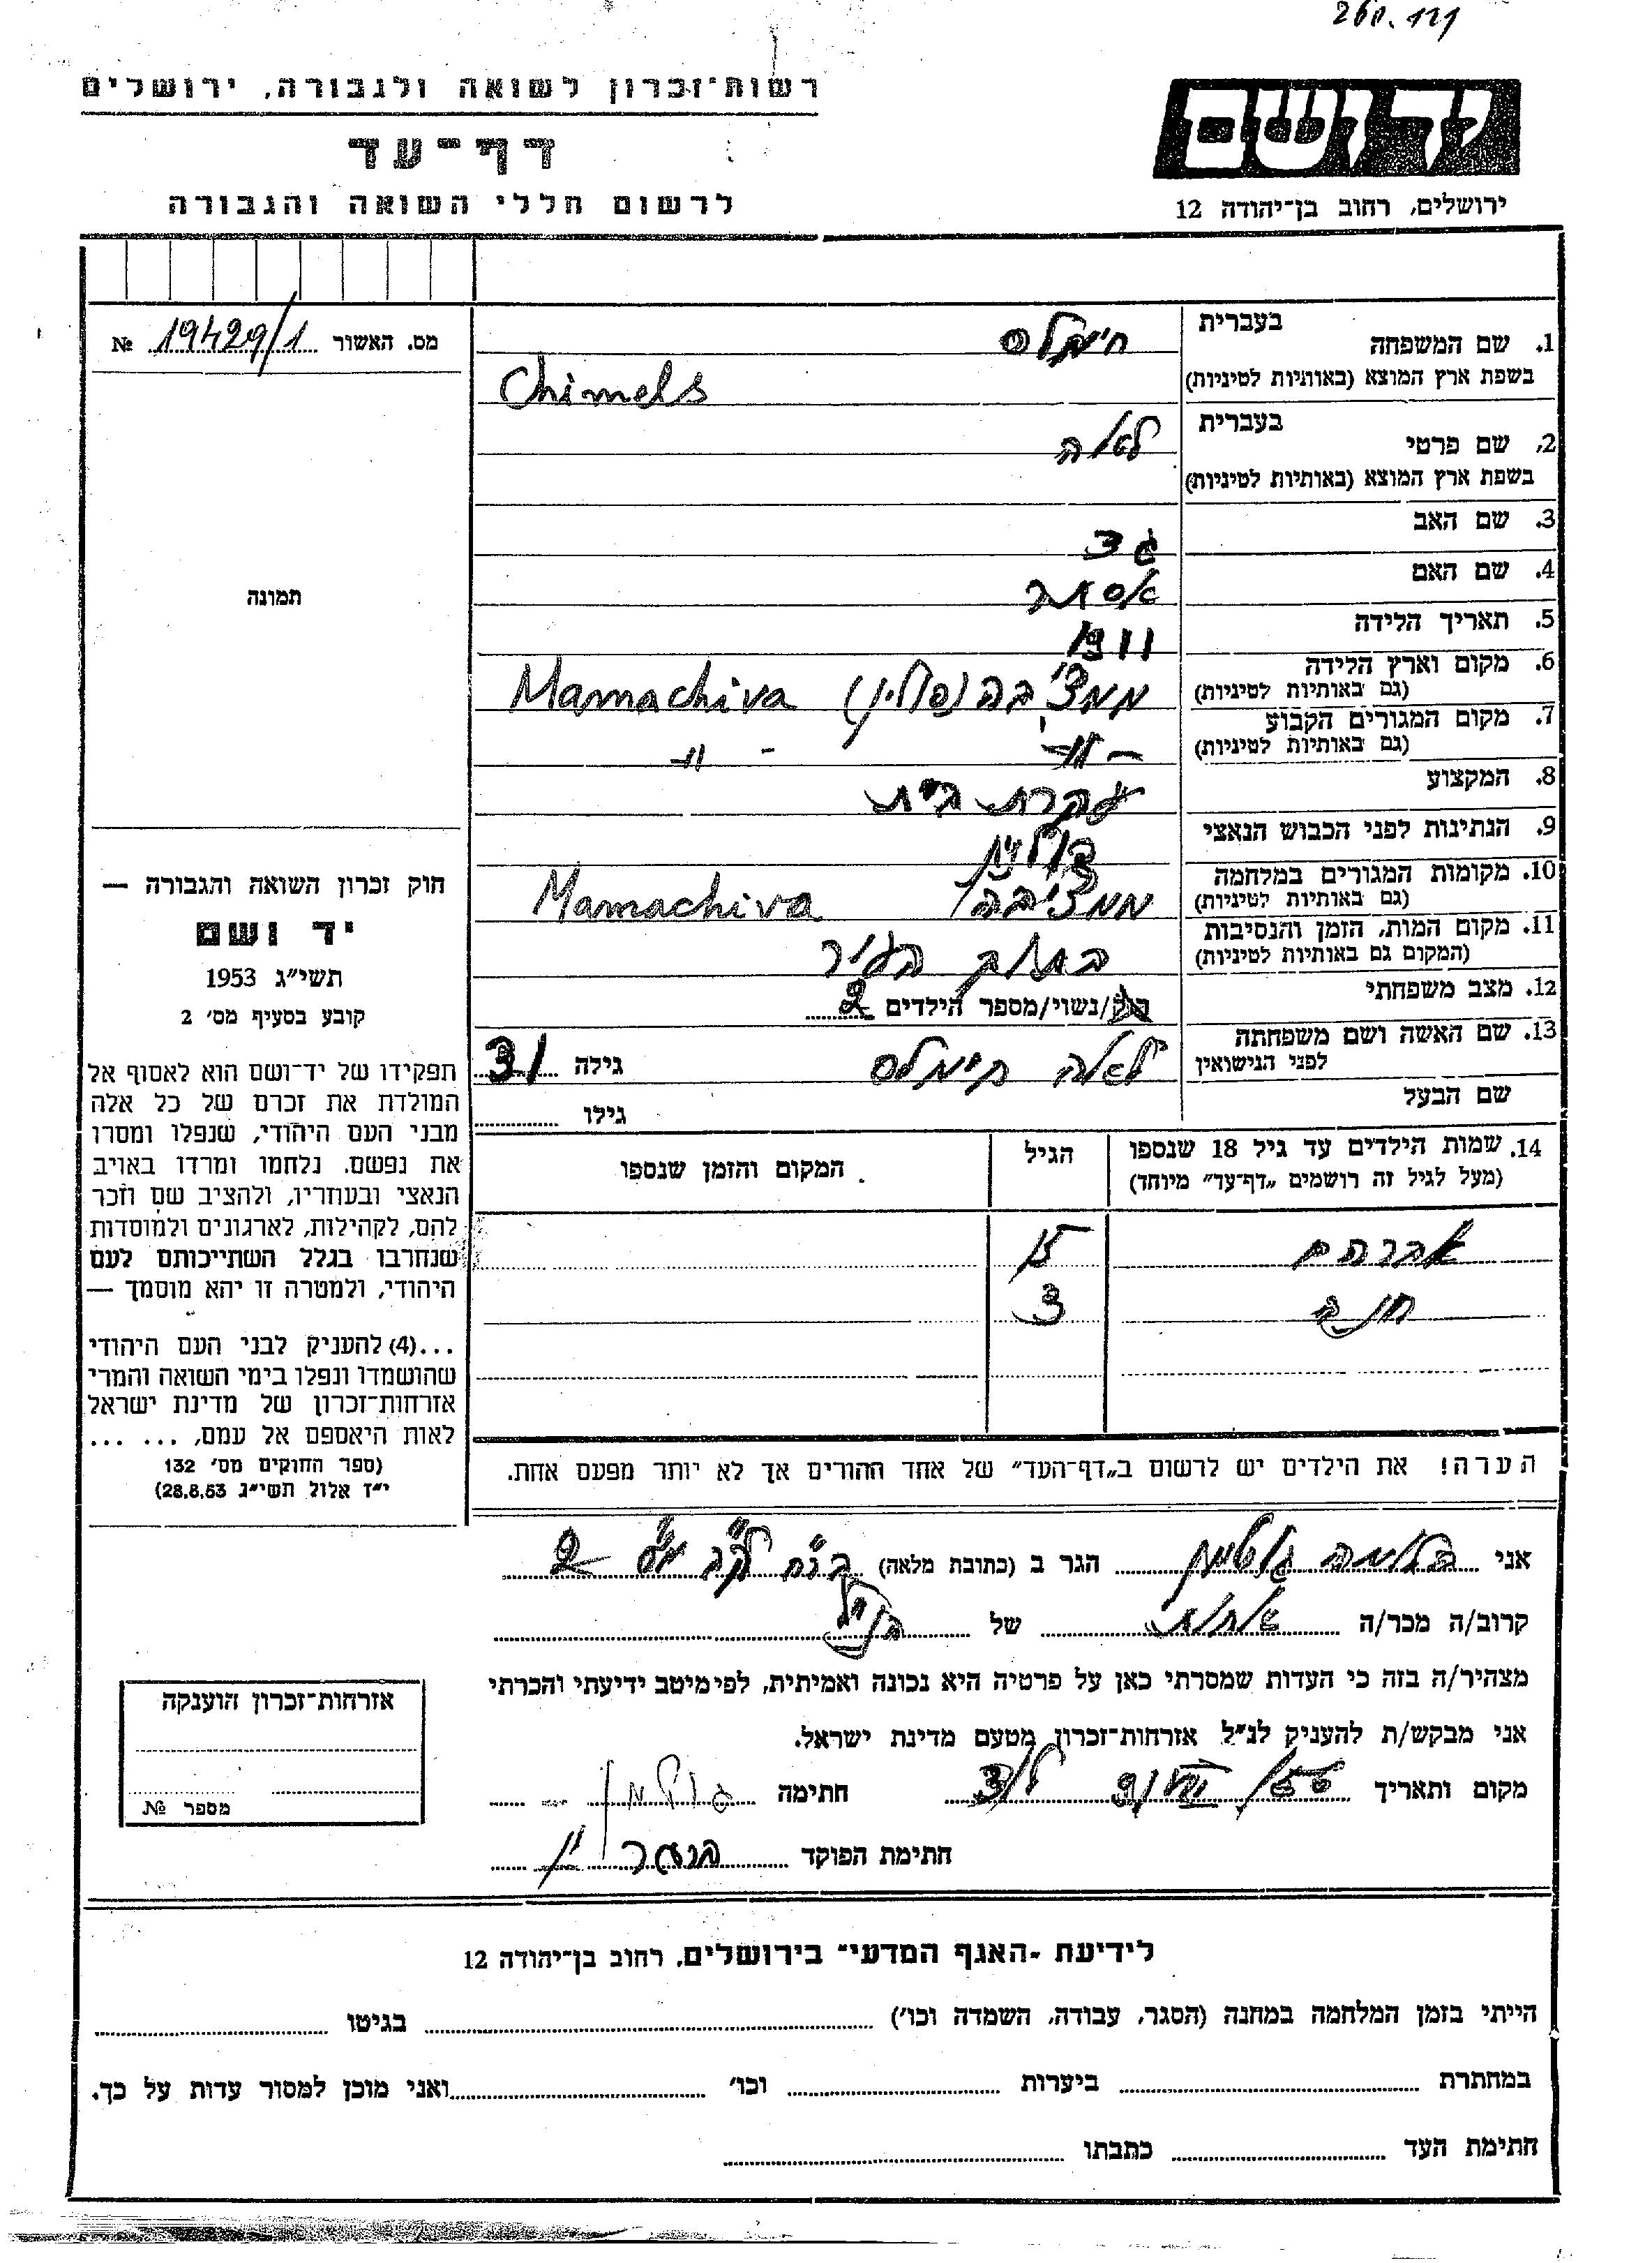 260.121
רשות־זכרון לשואה ולגבורה, ירושלים
דף־עד
לרשום חללי השואה והגבורה
יד ושם
ירושלים, רחוב בן־יהודה 12
מס. האשור 19429/1 №
תמונה
חוק זכרון השואה והגבורה —
יד ושם
תשי״ג 1953
קובע בסעיף מס׳ 2
תפקידו של יד־ושם הוא לאסוף אל
המולדת את זכרם של כל אלה
מבני העם היהודי, שנפלו ומסרו
את נפשם, נלחמו ומרדו באויב
הנאצי ובעוזריו, ולהציב שם וזכר
להם, לקהילות, לארגונים ולמוסדות
שנחרבו בגלל השתייכותם לעם
היהודי, ולמטרה זו יהא מוסמך —
...(4) להעניק לבני העם היהודי
שהושמדו ונפלו בימי השואה והמרי
אזרחות־זכרון של מדינת ישראל
לאות היאספם אל עמם, ... ...
(ספר החוקים מס׳ 132
י״ז אלול תשי״ג 28.8.53)
1. שם המשפחה בעברית חימלס
בשפת ארץ המוצא (באותיות לטיניות) Chimels
2. שם פרטי בעברית לאה
בשפת ארץ המוצא (באותיות לטיניות)
3. שם האב
4. שם האם אסתר
5. תאריך הלידה 1911
6. מקום וארץ הלידה ממצ׳יבה (פולין) Mamachiva
(גם באותיות לטיניות)
7. מקום המגורים הקבוע -״- -״-
(גם באותיות לטיניות)
8. המקצוע עקרת בית
9. הנתינות לפני הכבוש הנאצי פולנית
10. מקומות המגורים במלחמה ממצ׳יבה Mamachiva
(גם באותיות לטיניות)
11. מקום המות, הזמן והנסיבות בתוך העיר
(המקום גם באותיות לטיניות)
12. מצב משפחתי רוק/נשוי/מספר הילדים 2
13. שם האשה ושם משפחתה לאה חימלס גילה 31
לפני הנישואין
שם הבעל גילו
14. שמות הילדים עד גיל 18 שנספו הגיל המקום והזמן שנספו
(מעל לגיל זה רושמים „דף־עד״ מיוחד)
אברהם
3
הערה! את הילדים יש לרשום ב„דף־העד״ של אחד ההורים אך לא יותר מפעם אחת.
אני הגר ב (כתובת מלאה) 2
קרוב/ה מכר/ה אחות של הנ״ל
מצהיר/ה בזה כי העדות שמסרתי כאן על פרטיה היא נכונה ואמיתית, לפי מיטב ידיעתי והכרתי
אני מבקש/ת להעניק לנ״ל אזרחות־זכרון מטעם מדינת ישראל.
מקום ותאריך חתימה
חתימת הפוקד
אזרחות־זכרון הוענקה
מספר №
לידיעת ״האגף המדעי״ בירושלים, רחוב בן־יהודה 12
הייתי בזמן המלחמה במחנה (הסגר, עבודה, השמדה וכו׳) בגיטו
במחתרת ביערות וכו׳ ואני מוכן למסור עדות על כך.
חתימת העד כתבתו